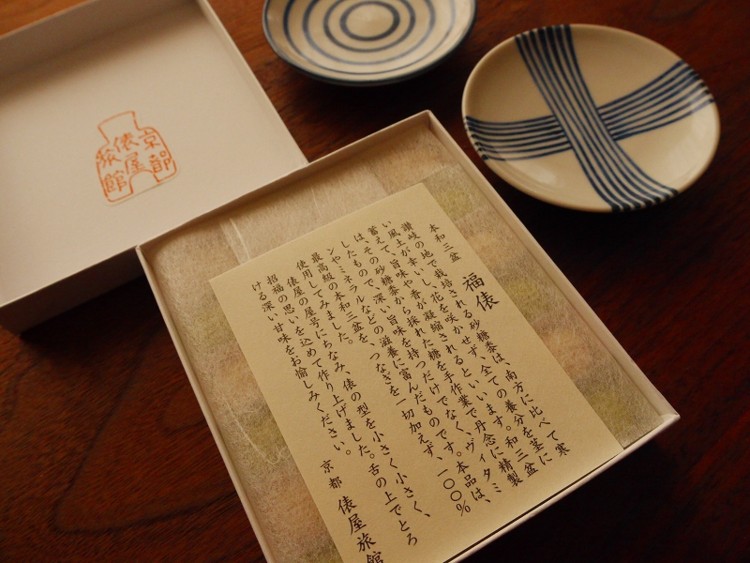 京都
俵屋
旅館
本和三盆 福俵
讃岐の地で栽培される砂糖黍は、南方に比べて寒
い風土が幸いし、花を咲かせず、全ての養分を茎に
蓄えて、旨味や香が凝縮されるといいます。和三盆
は、その砂糖黍から採れた糖を手作業で丹念に精製
したもので、深い旨味を持つだけでなく、ヴィタミ
ンやミネラルなどの滋養に富んだものです。本品は、
最高級の本和三盆を、つなぎを一切加えず、一〇〇%
使用してみました。
俵屋の屋号にちなみ、俵の型を小さく小さく、
招福の思いを込めて作り上げました。舌の上でとろ
ける深い甘味をお愉しみください。
京都 俵屋旅館